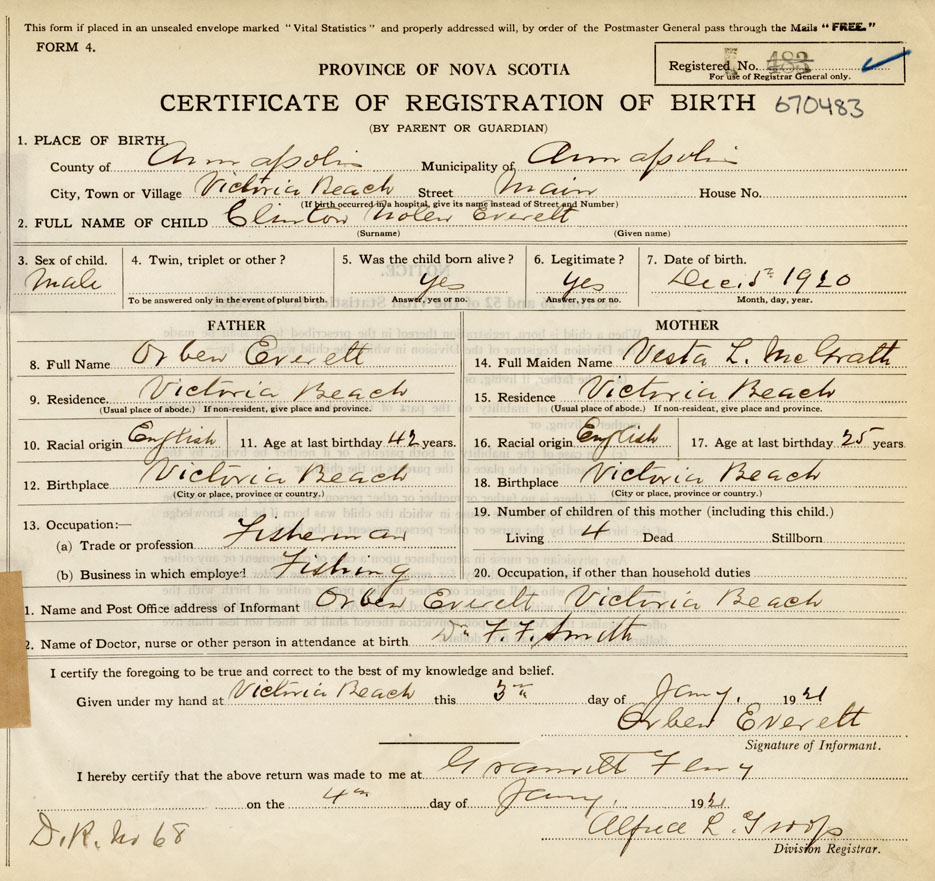 This form if placed in an unsealed envelope marked "Vital Statistics" and properly addressed will, by order of the Postmaster General pass through the Mails "FREE."
FORM 4.
Registered No. 483
For use of Registrar General only.
PROVINCE OF NOVA SCOTIA
CERTIFICATE OF REGISTRATION OF BIRTH 670483
(BY PARENT OR GUARDIAN)
1. PLACE OF BIRTH,
County of Annapolis Municipality of Annapolis
City, Town or Village Victoria Beach Street Main House No.
(If birth occurred in a hospital, give its name instead of Street and Number)
2. FULL NAME OF CHILD Clinton Nolen Everett
(Surname) (Given name)
3. Sex of child. 4. Twin, triplet or other ? 5. Was the child born alive ? 6. Legitimate ? 7. Date of birth.
Male yes yes Dec. 1920
To be answered only in the event of plural birth. Answer, yes or no. Answer, yes or no. Month, day, year.
FATHER MOTHER
8. Full Name Orben Everett 14. Full Maiden Name Vesta L. McGrath
9. Residence. Victoria Beach 15. Residence Victoria Beach
(Usual place of abode.) If non-resident, give place and province. (Usual place of abode.) If non-resident, give place and province.
10. Racial origin English 11. Age at last birthday 42 years. 16. Racial origin English 17. Age at last birthday 25 years
12. Birthplace Victoria Beach 18. Birthplace Victoria Beach
(City or place, province or country.) (City or place, province or country.)
13. Occupation:— 19. Number of children of this mother (including this child.)
(a) Trade or profession Fisherman Living 4 Dead Stillborn
(b) Business in which employed Fishing 20. Occupation, if other than household duties
1. Name and Post Office address of Informant Orben Everett Victoria Beach
2. Name of Doctor, nurse or other person in attendance at birth Dr F. F. Smith
I certify the foregoing to be true and correct to the best of my knowledge and belief.
Given under my hand at Victoria Beach this 3rd day of Jany. 1921
Orben Everett
Signature of Informant.
I hereby certify that the above return was made to me at Ferry
on the 4th day of Jany. 1921
D.R. No 68 Alfred L. Troop
Division Registrar.